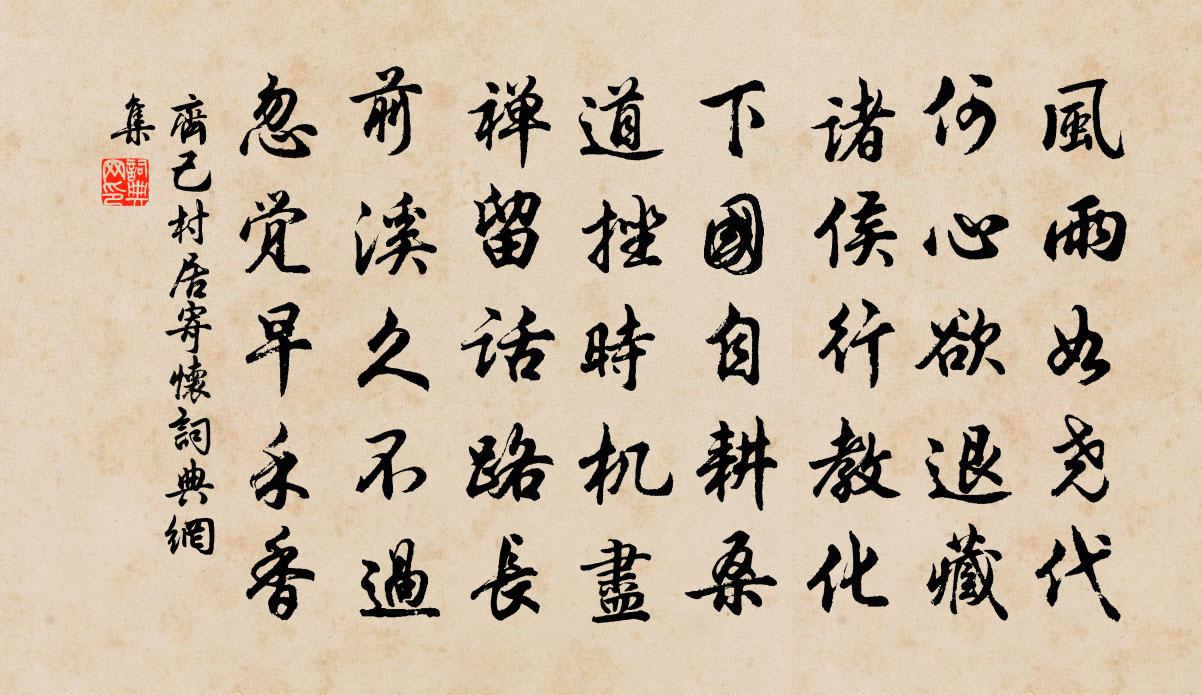 風雨如尧代
何心欲退藏
諸侯行教化
下國自耕桑
道挫時机盡
禅留話路長
前溪久不過
忽觉早禾香
齊己村居寄懷詞典網
集
詞典网印